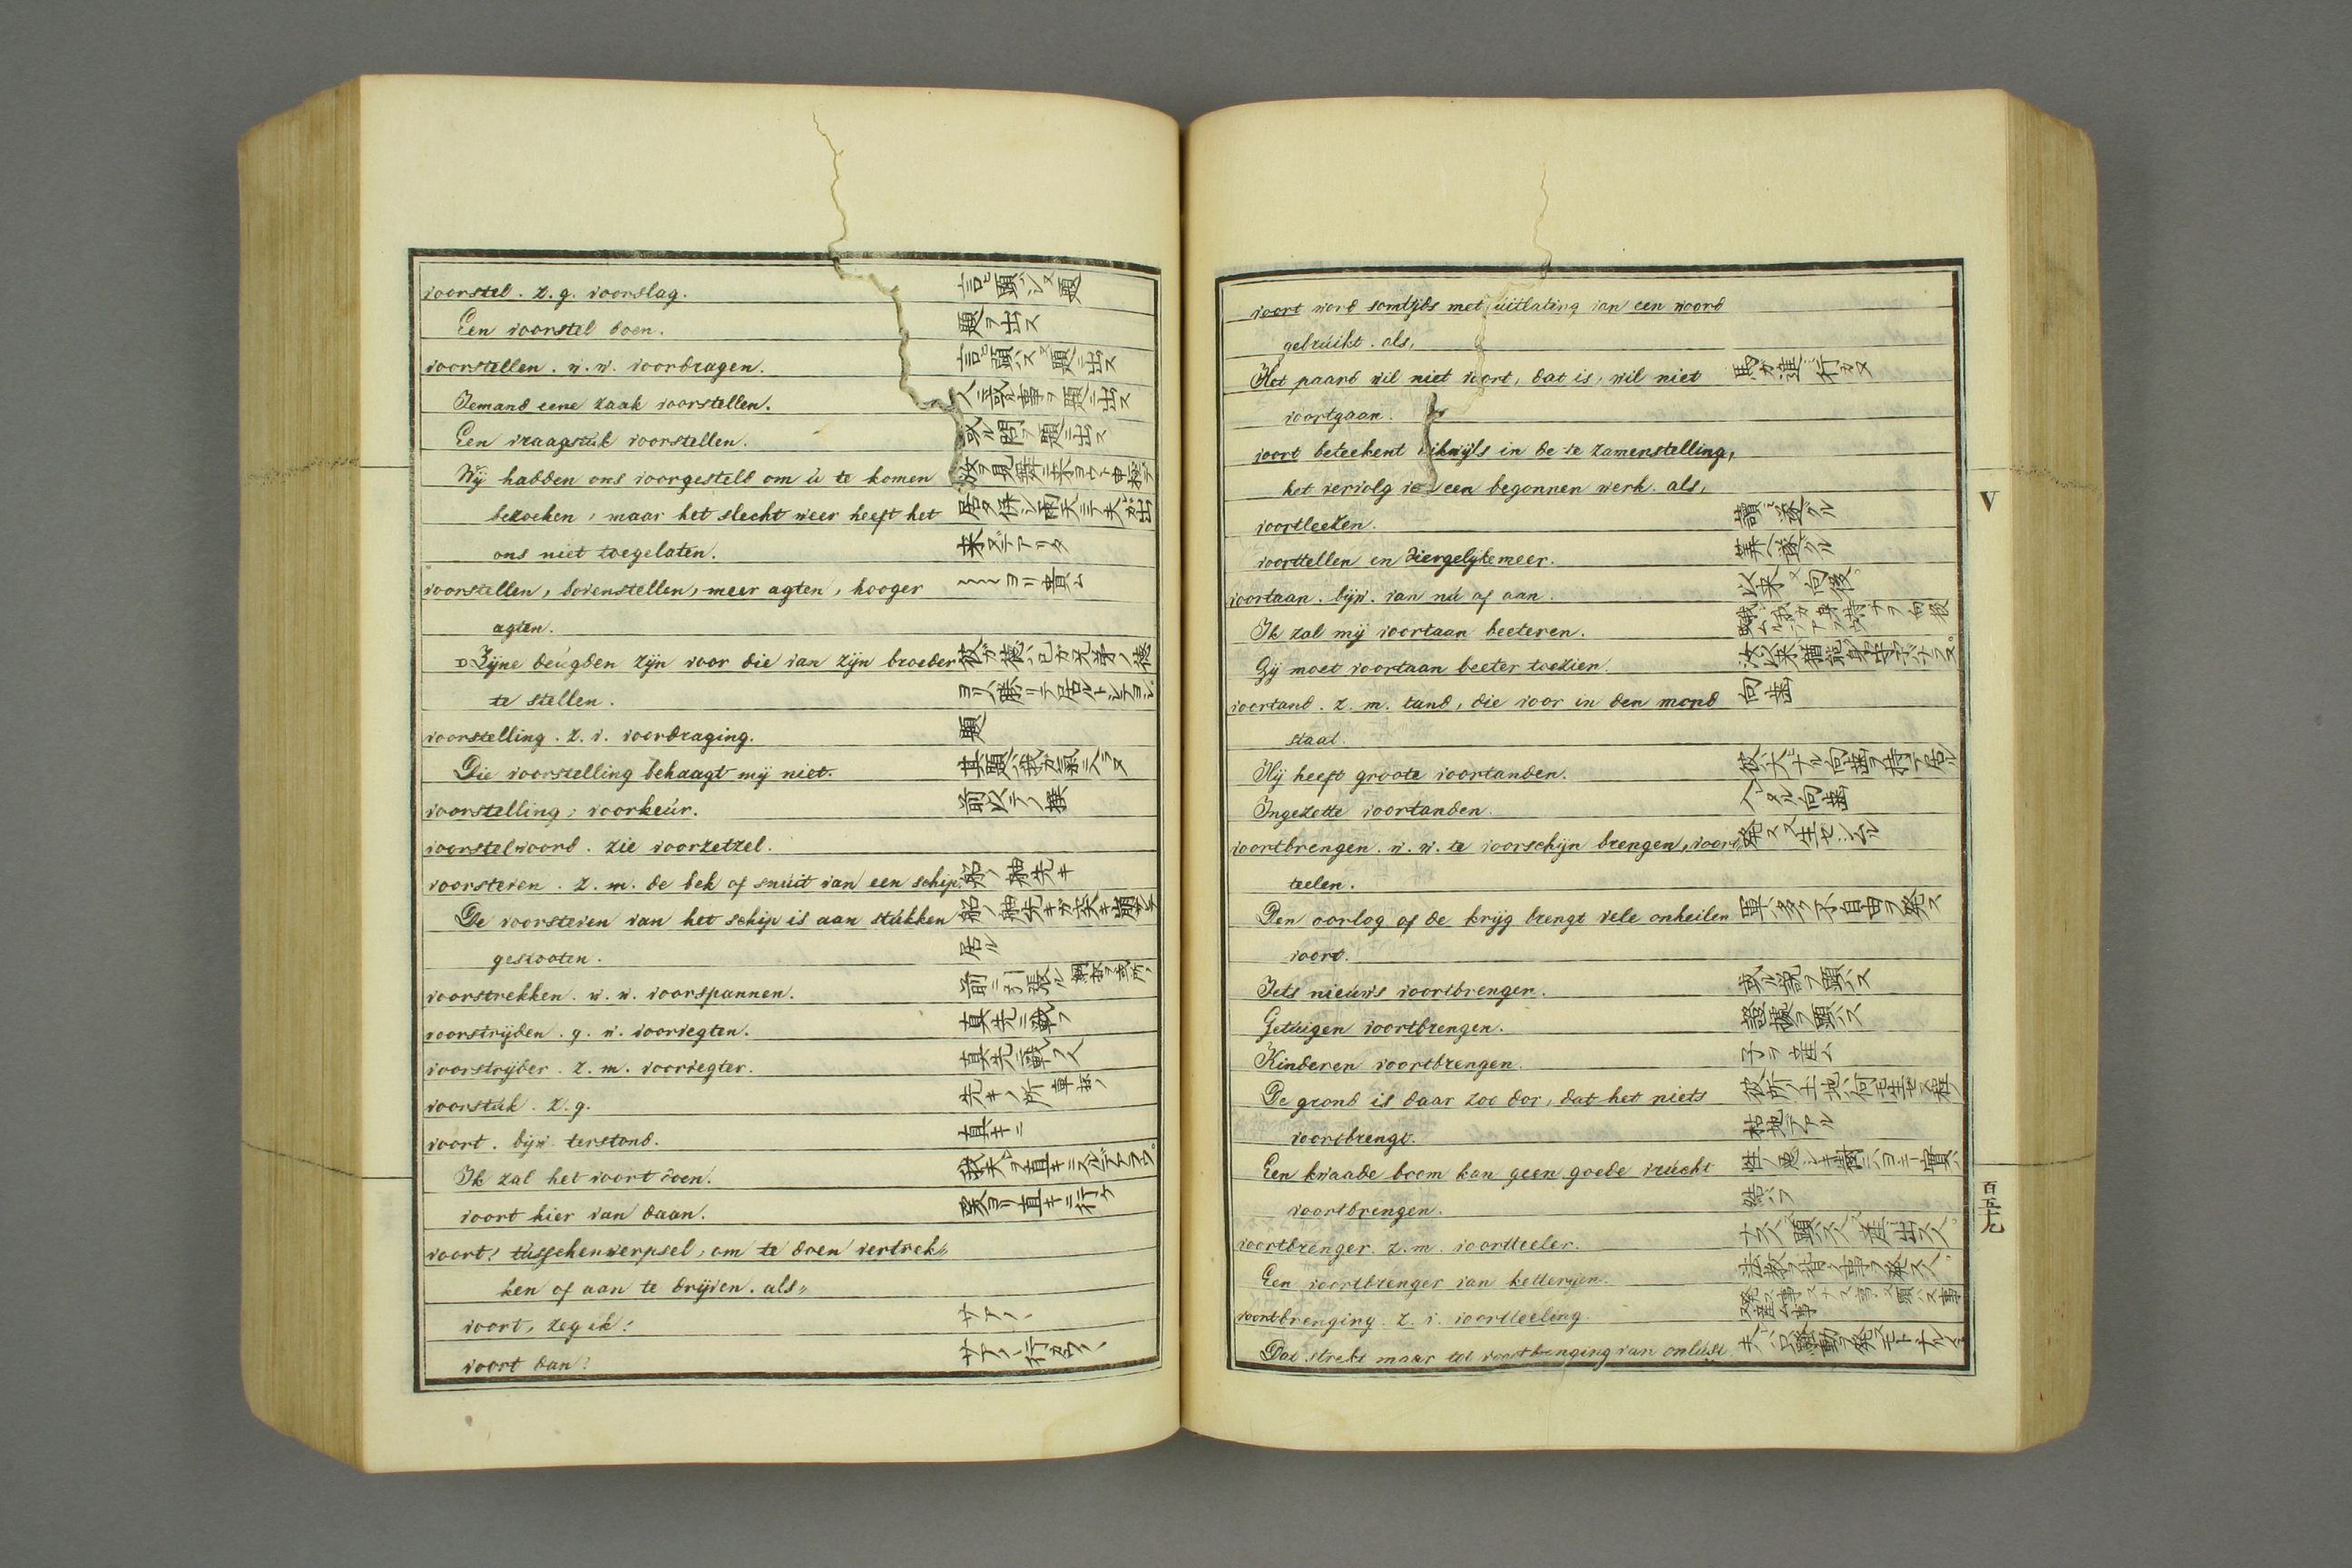 voorstel. z. g. voorslag.
言ヒ顕ハシ又題
Een voorstel doen.
題ヲ出ス
voorstellen. w. w. voordragen.
言ヒ顕ハス又題ニ出ス
Iemand eene zaak voorstellen.
人ニ或事ヲ題ニ出ス
Een vraagstuk voorstellen.
或ル問ヲ題ニ出ス
Wij hadden ons voorgesteld om ú te komen
bezoeken, maar het slecht weer heeft het
ons niet toegelaten.
来ヌデアリタ
voorstellen, bovenstellen, meer agten, hooger
ヨリ貴ム
agten.
Zijne deúgden zijn voor die van zijn broeder
彼ガ徳ハ己ガ兄弟ノ徳
te stellen.
voorstelling. z. v. voordraging.
題
Die voorstelling behaagt mij niet.
其題ハ我ガ氣ニ入ラヌ
voorstelling; voorkeúr.
voorstelwoord. zie voorzetzel.
voorsteven. z. m. de bek of snúit van een schip.
船ノ舳先キ
De voorsteven van het schip is aan stúkken
gestooten.
居ル
voorstrekken. w. w. voorspannen.
前ニ引張ル
voorstrijden. g. w. voorvegten.
真先ニ戦フ
voorstrijder. z. m. voorvegter.
真先ニ戦フ人
voorstúk. z. g.
先キノ所
voort. bijw. terstond.
直キニ
Ik zal het voort doen.
我夫レヲ直キニスルデアラウ
voort hier van daan.
爰ヨリ直キニ行ケ
voort! tússchenwerpsel, om te doen vertrek„
ken of aan te drijven. als„
voort, zeg ik!
サアヽ
voort dan!
サアヽ行カウヽ
voort word somtijds met úitlating van een woord
gebrúikt. als,
Het paard wil niet voort, dat is, wil niet
馬ガ進ミ行カヌ
voortgaan.
voort beteekent dikwijls in de te zamenstelling,
het vervolg van een begonnen werk. als,
voortleezen.
讀ミ遂クル
voorttellen en diergelijke meer.
算ヘ遂クル
voortaan. bijw. van nú af aan.
以来又向後
Ik zal mij voortaan beeteren.
Gij moet voortaan beeter toezien.
voortand. z. m. tand, die voor in den mond
向歯
staat.
Hij heeft groote voortanden.
彼ハ大ナル向歯ヲ持テ居ル
Ingezette voortanden.
入レタル向歯
voortbrengen. w. w. te voorschijn brengen, voort„
発ス又生セシムル
teelen.
Den oorlog of de krijg brengt vele onheilen
軍ハ多クノ不自由ヲ発ス
voort.
Iets nieuws voortbrengen.
或ル説ヲ顕ハス
Getúigen voortbrengen.
證據ヲ顕ハス
Kinderen voortbrengen.
子ヲ産ム
De grond is daar zoo dor, dat het niets
彼所ノ土地ハ何モ生セヌ程ノ
voortbrengt.
枯地デアル
Een kwaade boom kan geen goede vrúcht
voortbrengen.
voortbrenger. z. m. voortteeler.
Een voortbrenger van ketterijen.
voortbrenging. z. v. voortteeling.
Dat strekt maar tot voortbrenging van onlúst.
V
百五十九